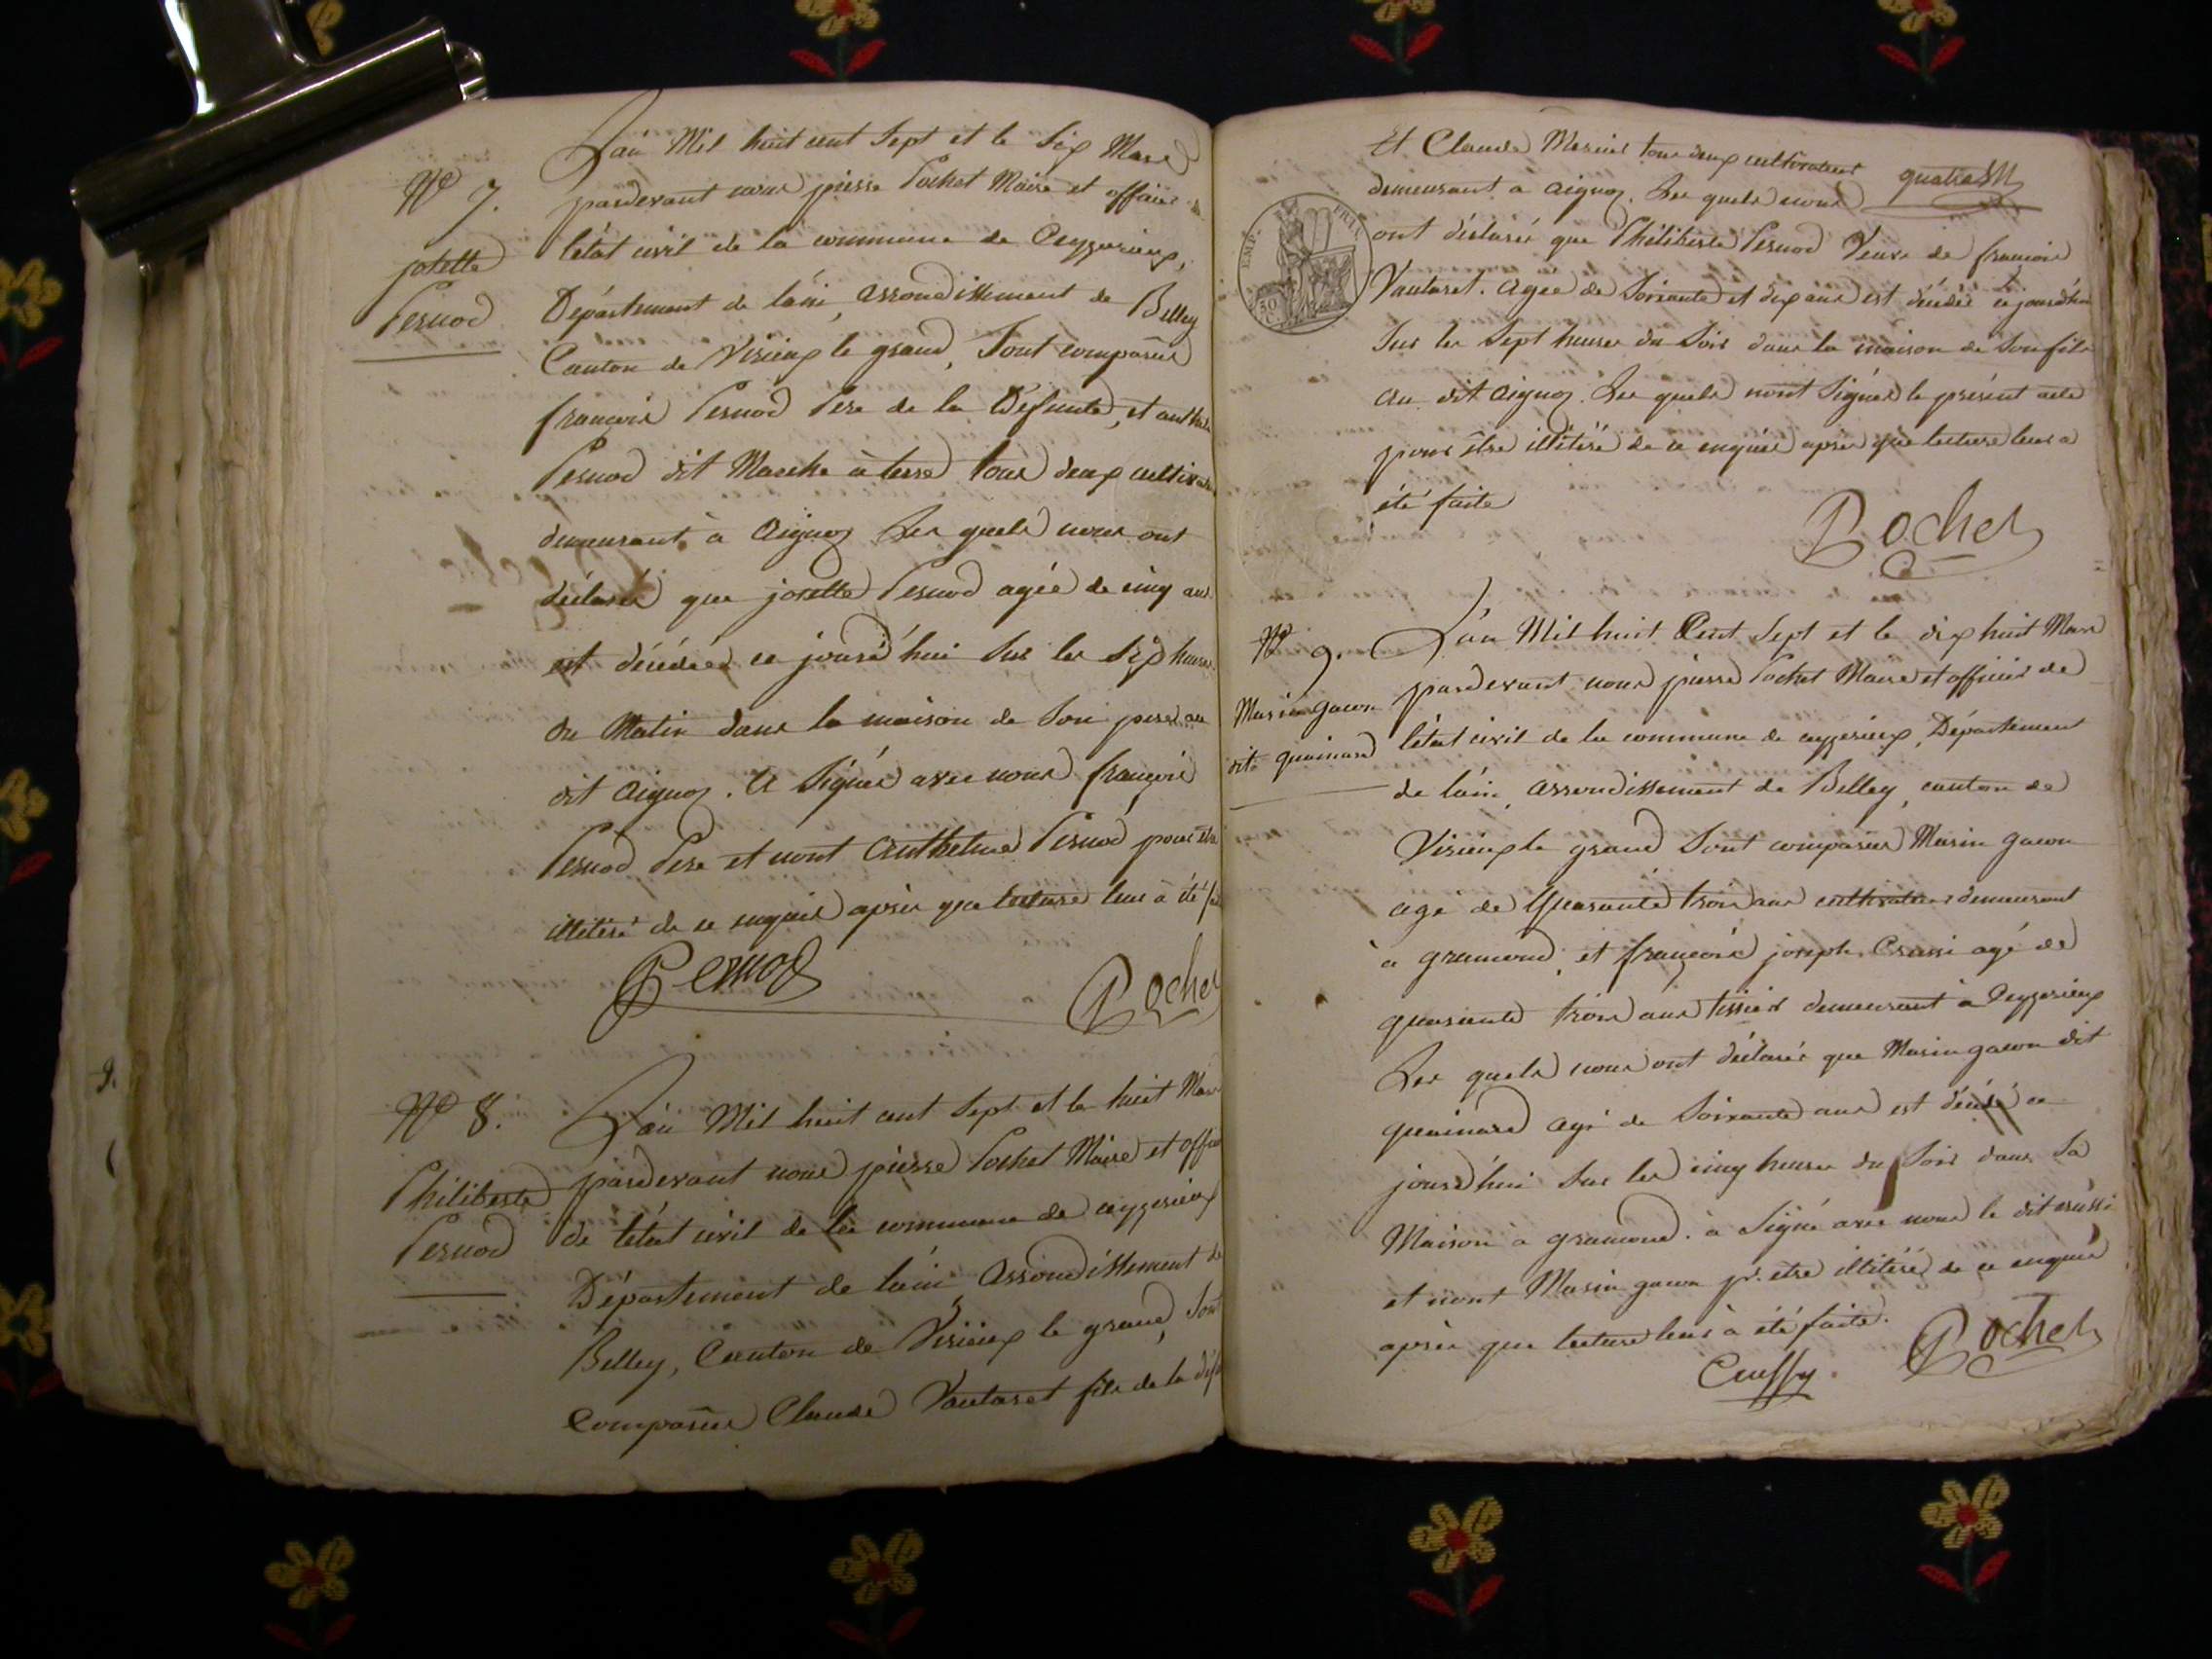 L'an Mil huit cent Sept et le Six Mars
Nº 7.
pardevant nous pierre Pochet Maire et officier de
josette
Pernod
létat civil de la commune de Ceyzerieux,
Département de láin, arrondissement de Belley
Canton de Virieux le grand, Sont comparus
françois Pernod Pere de la Defunte, et anthelme
Pernod dit Marche à terre tous deux cultivateurs
demeurant à aignoz Les quels nous ont
déclarés que josette Pernod agée de cinq ans
est décédée ce jourd'hui Sur les Six heures
du Matin dans la maison de Son pere au
dit aignoz. A Signée avec nous françois
Pernod Pere et nont anthelme Pernod pour être
illitéré de ce enquis après que lecture leur à été faite
Pernod
Pochet
Nº 8.
Philiberte
Pernod
L'an Mil huit cent Sept et le huit Mars
pardevant nous pierre Pochet Maire et officier
de létat civil de la commune de ceyzerieux
Département de láin, arrondissement de
Belley, Canton de Virieux le grand, Sont
Comparus Claude Vautaret fils de la défunte
Et Claude Merier tous deux cultivateurs
demeurant à aignoz. Les quels nous
ont déclarés que Philiberte Pernod Veuve de françois
Vautaret. agée de Soixante et dix ans est décédée ce jourd'hui
Sur les Sept heures du Soir dans la maison de Son fils
au dit aignoz. Les quels nont Signés le présent acte
pour être illitéré de ce enquis après que lecture leur a
été faite
Pochet
EMP. FRAN.
50 C.
Nº 9.
Marin gacon
dit quainard
L'an Mil huit Cent Sept et le dix huit Mars
pardevant nous pierre Pochet Maire et officier de
létat civil de la commune de ceyzerieux, Département
de láin, arrondissement de Belley, canton de
Virieux le grand Sont comparus Marin gacon
agé de Quarante trois ans cultivateur demeurant
à gramond, et françois joseph Crussi agé de
quarante trois ans tissier demeurant à Ceyzerieux
Les quels nous ont déclarés que Marin gacon dit
quainard agé de Soixante ans est décédé ce
jourd'hui Sur les cinq heures du Soir dans Sa
Maison à gramond. à Signé avec nous le dit crussi
et nont Marin gacon pr. etre illitéré de ce enquis
après que lecture leur à été faite.
Pochet